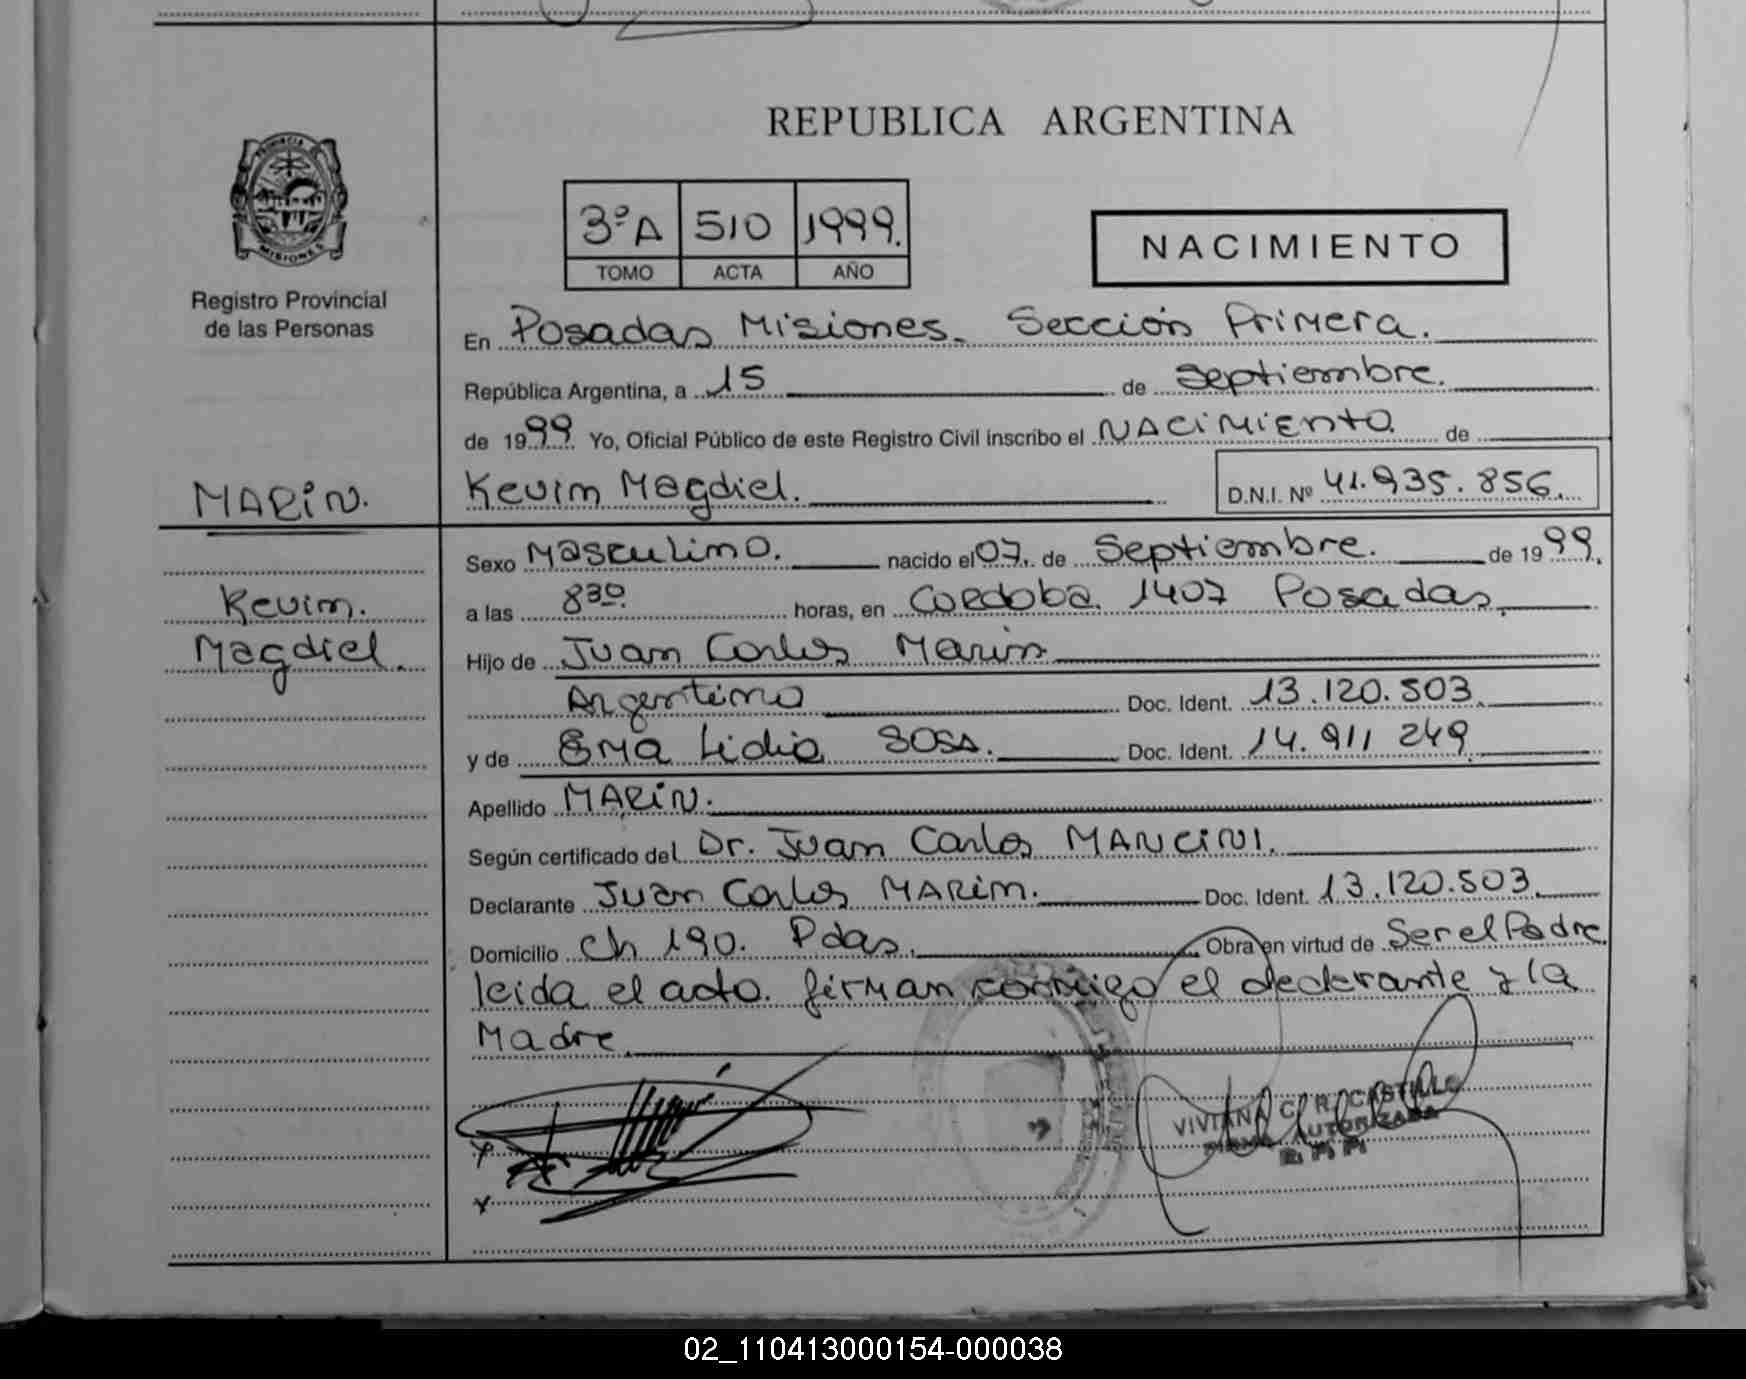 REPUBLICA ARGENTINA
PROVINCIA DE
MISIONES
Registro Provincial
de las Personas
3ºA 510 1999.
TOMO ACTA AÑO
NACIMIENTO
En Posadas Misiones. Sección Primera.
República Argentina, a 15 de Septiembre.
de 1999 Yo, Oficial Público de este Registro Civil inscribo el NACIMIENTO de
MARIN.
Kevin Magdiel. D.N.I. Nº 41.935.856.
Sexo Masculino. nacido el 07. de Septiembre. de 1999.
Kevin.
a las 8 30. horas, en Cordoba 1407 Posadas.
Magdiel.
Hijo de Juan Carlos Marin
Argentino Doc. Ident. 13.120.503.
y de Ema Lidia SOSA. Doc. Ident. 14.911 249
Apellido MARIN.
Según certificado del Dr. Juan Carlos MANCINI.
Declarante Juan Carlos MARIN. Doc. Ident. 13.120.503.
Domicilio ch 190. Pdas. Obra en virtud de Ser el Padre
leida el acta. firman conmigo el declarante y la
Madre
VIVIANA C. R. CASTILLO
FIRMA AUTORIZADA
02_110413000154-000038